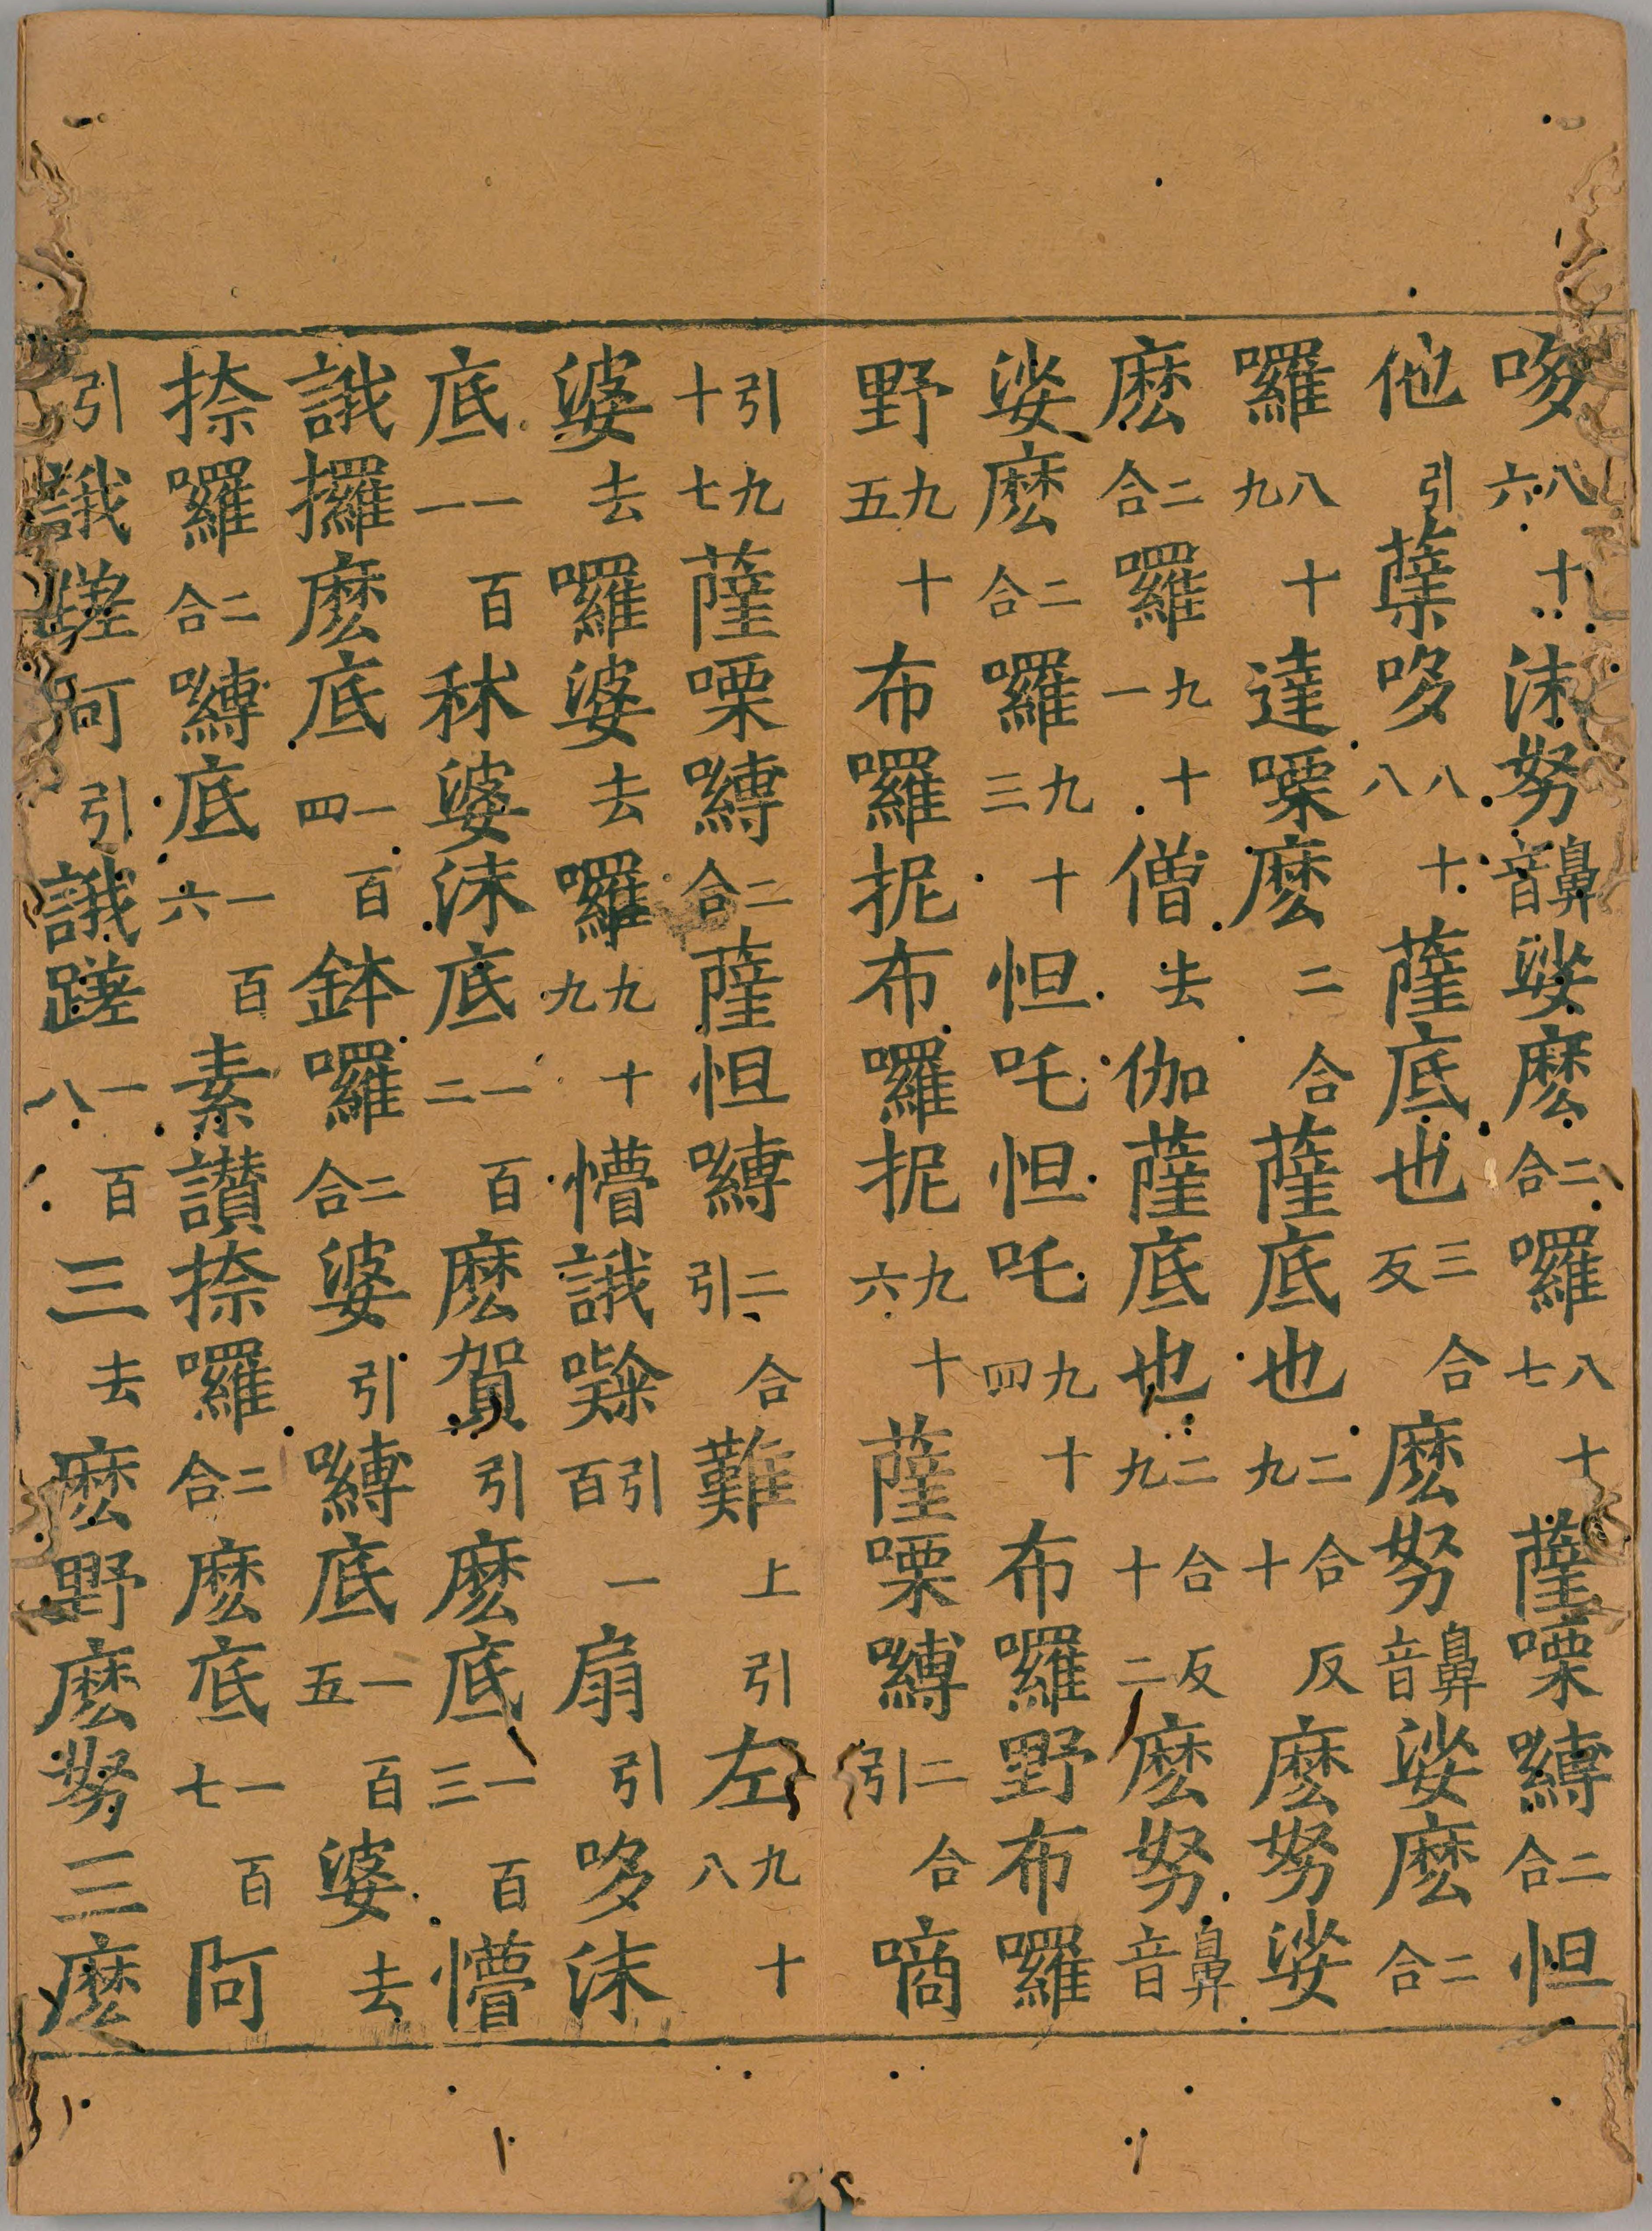 哆八十六沫努鼻音娑麽二合囉八十七薩㗚嚩二合怛
他引蘖哆八十八薩底也三合反麽努鼻音娑麽二合
囉八十九達㗚麽二合薩底也二合反九十麽努娑
麽二合囉九十一僧去伽薩底也二合反九十二麽努鼻音
娑麽二合囉九十三怛吒怛吒九十四布囉野布囉
野九十五布囉抳布囉抳九十六薩㗚嚩二合引嘀
引九十七薩㗚嚩二合薩怛嚩二合引難上引左九十八
婆去囉婆去囉九十九懵誐㘑引一百扇引哆沫
底一百一秫婆沫底一百二麽賀引麽底一百三懵
誐攞麽底一百四鉢囉二合婆引嚩底一百五婆去
捺囉二合嚩底一百六素讚捺囉二合麽底一百七阿
引誐蹉阿引誐蹉一百八三去麽野麽努三麽